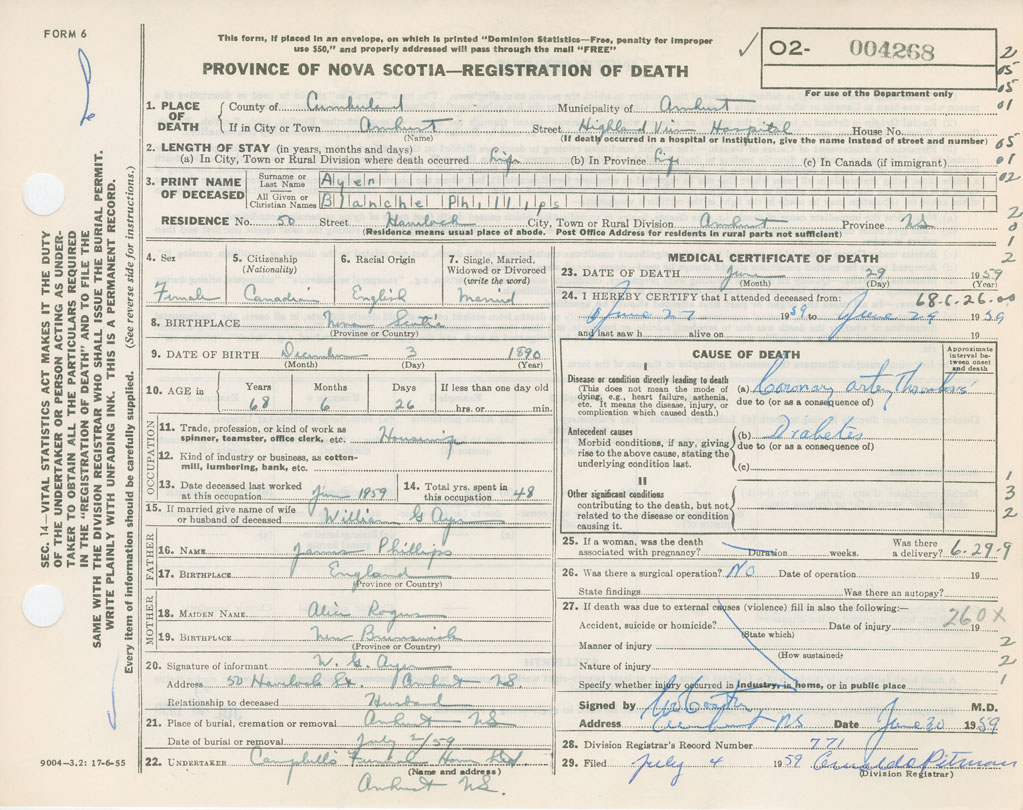 FORM 6
This form, if placed in an envelope, on which is printed "Dominion Statistics—Free, penalty for improper
use $50," and properly addressed will pass through the mail "FREE"
O2- 004268
For use of the Department only
PROVINCE OF NOVA SCOTIA—REGISTRATION OF DEATH
1. PLACE OF DEATH
County of Cumberland Municipality of Amherst
If in City or Town Amherst Street Highland View Hospital House No.
(Name) (If death occurred in a hospital or institution, give the name instead of street and number)
2. LENGTH OF STAY (in years, months and days)
(a) In City, Town or Rural Division where death occurred Life (b) In Province Life (c) In Canada (if immigrant)
3. PRINT NAME OF DECEASED
Surname or Last Name Ayer
All Given or Christian Names Blanche Phillips
RESIDENCE No. 50 Street Havelock City, Town or Rural Division Amherst Province NS
(Residence means usual place of abode. Post Office Address for residents in rural parts not sufficient)
4. Sex Female
5. Citizenship (Nationality) Canadian
6. Racial Origin English
7. Single, Married, Widowed or Divorced (write the word) Married
8. BIRTHPLACE Nova Scotia
(Province or Country)
9. DATE OF BIRTH December 3 1890
(Month) (Day) (Year)
10. AGE in Years Months Days If less than one day old
68 6 26 hrs. or min.
OCCUPATION
11. Trade, profession, or kind of work as
spinner, teamster, office clerk, etc. Housewife
12. Kind of industry or business, as cotton-
mill, lumbering, bank, etc.
13. Date deceased last worked
at this occupation June 1959
14. Total yrs. spent in
this occupation 48
15. If married give name of wife
or husband of deceased William G Ayer
FATHER
16. NAME James Phillips
17. BIRTHPLACE England
(Province or Country)
MOTHER
18. MAIDEN NAME Alice Rogers
19. BIRTHPLACE New Brunswick
(Province or Country)
20. Signature of informant W. G. Ayer
Address 50 Havelock St. Amherst NS.
Relationship to deceased Husband
21. Place of burial, cremation or removal Amherst NS
Date of burial or removal July 2/59
22. UNDERTAKER Campbell's Funeral Home Ltd
(Name and address)
Amherst NS.
MEDICAL CERTIFICATE OF DEATH
23. DATE OF DEATH June 29 1959
(Month) (Day) (Year)
24. I HEREBY CERTIFY that I attended deceased from: 68-6-26-00
June 27 1959 to June 29 1959
and last saw h alive on 19
CAUSE OF DEATH
Approximate interval between onset and death
I
Disease or condition directly leading to death
(This does not mean the mode of
dying, e.g., heart failure, asthenia,
etc. It means the disease, injury, or
complication which caused death.)
(a) Coronary artery Thrombosis
due to (or as a consequence of)
Antecedent causes
Morbid conditions, if any, giving
rise to the above cause, stating the
underlying condition last.
(b) Diabetes
due to (or as a consequence of)
(c)
II
Other significant conditions
contributing to the death, but not
related to the disease or condition
causing it.
25. If a woman, was the death
associated with pregnancy? Duration weeks. Was there a delivery? 6-29-9
26. Was there a surgical operation? No Date of operation 19
State findings Was there an autopsy?
27. If death was due to external causes (violence) fill in also the following:—
260X
Accident, suicide or homicide? Date of injury 19
(State which)
Manner of injury
(How sustained)
Nature of injury
Specify whether injury occurred in industry, in home, or in public place
Signed by M.D.
Address Amherst NS Date June 30 1959
28. Division Registrar's Record Number 771
29. Filed July 4 1959 Pitman
(Division Registrar)
2
05
05
01
05
01
02
2
0
1
2
1
3
2
2
2
1
SEC. 14—VITAL STATISTICS ACT MAKES IT THE DUTY
OF THE UNDERTAKER OR PERSON ACTING AS UNDER-
TAKER TO OBTAIN ALL THE PARTICULARS REQUIRED
IN THE "REGISTRATION OF DEATH" AND TO FILE THE
SAME WITH THE DIVISION REGISTRAR WHO SHALL ISSUE THE BURIAL PERMIT.
WRITE PLAINLY WITH UNFADING INK. THIS IS A PERMANENT RECORD.
Every item of information should be carefully supplied. (See reverse side for instructions.)
9004-3.2: 17-6-55